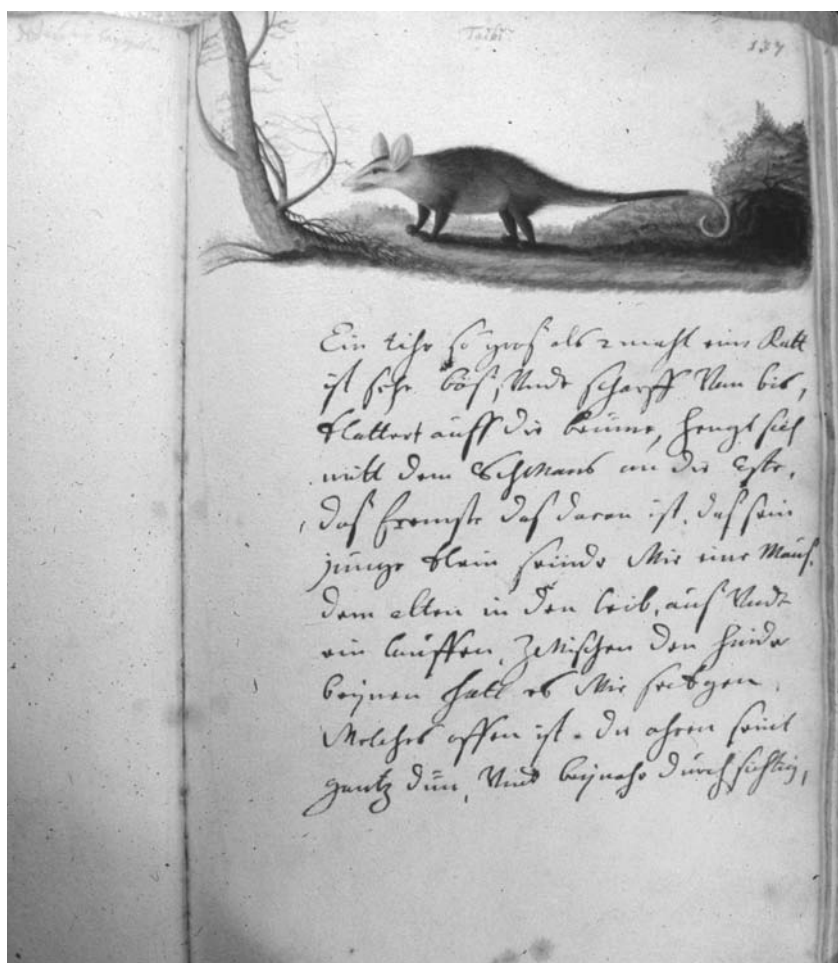 Taibi
137
Ein tihr so gros als 2 mahl eine Katt
ist sehr bös, Undt scharff Van bis,
klattert auff die beüme, hengt sich
mitt dem Schwans an die Este,
das fremste das daran ist, das sein
junge klein seinde Wie eine Maus,
dem alten in den leib, aus Undt
ein lauffen, Zwischen den hinde
beijnen hatt es Wie seckgen,
Welches offen ist, die ohren seint
gantz dün, Undt beijnahe durchsichtig,